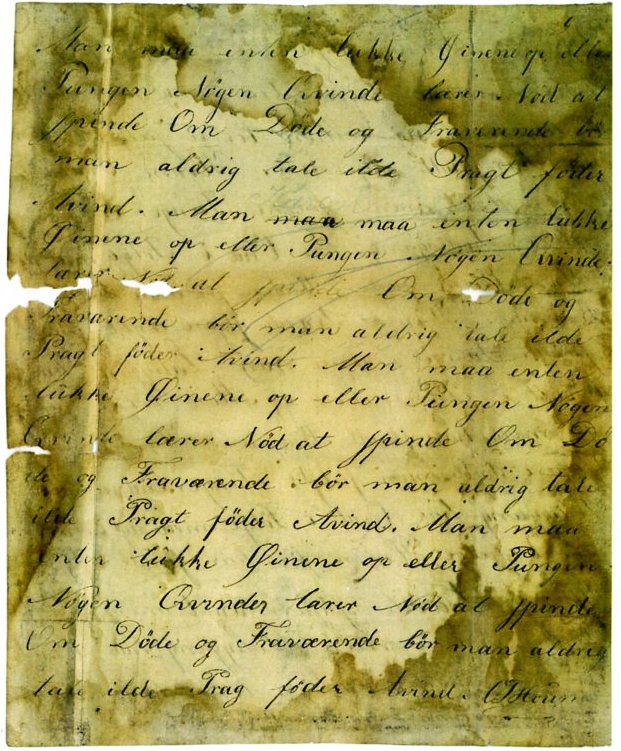 Man maa enten lukke Øinene op eller
Pungen Nøgen Qvinde lærer Nød at
spinde Om Döde og Fraværende bör
man aldrig tale ilde Pragt föder
Avind. Man maa maa enten lukke
Øinene op eller Pungen Nøgen Qvinde
lærer Nød at spinde Om Döde og
Fraværende bör man aldrig tale ilde
Pragt föder Avind. Man maa enten
lukke Øinene op eller Pungen Nøgen
Qvinde lærer Nöd at spinde Om Dö
de og Fraværende bör man aldrig tale
ilde Pragt föder Avind. Man maa
enten lukke Øinene op eller Pungen
Nøgen Qvinder lærer Nöd at spinde
Om Döde og Fraværende bör man aldrig
tale ilde Prag föder Avind.